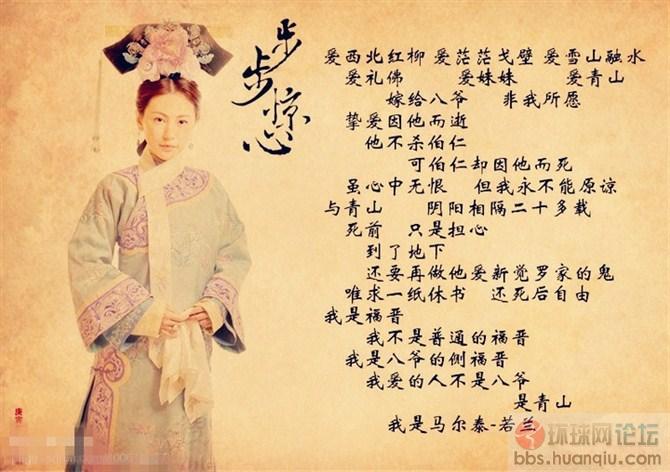 步步惊心
爱西北红柳 爱茫茫戈壁 爱雪山融水
爱礼佛 爱妹妹 爱青山
嫁给八爷 非我所愿
挚爱因他而逝
他不杀伯仁
可伯仁却因他而死
虽心中无恨 但我永不能原谅
与青山 阴阳相隔二十多载
死前 只是担心
到了地下
还要再做他爱新觉罗家的鬼
唯求一纸休书 还死后自由
我是福晋
我不是普通的福晋
我是八爷的侧福晋
我爱的人不是八爷
是青山
我是马尔泰-若兰
环球网论坛
bbs.huanqiu.com